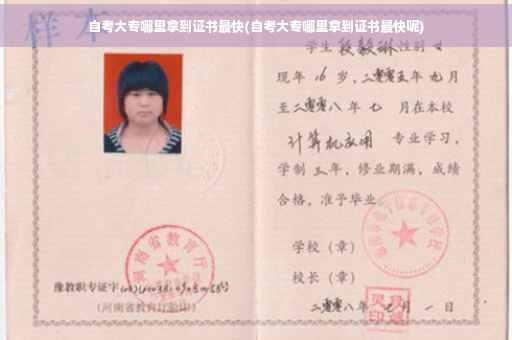 样本
自考大专哪里拿到证书最快(自考大专哪里拿到证书最快呢)
学生段毅琳性别女
现年16岁，二零零五年九月
至二零零八年七月在本校
计算机应用专业学习，
学制三年，修业期满，成绩
合格，准予毕业
学校（章）
校长（章）
二零零八年七月一日
河南省教育厅
豫教职专证字
(河南省教育厅验印)